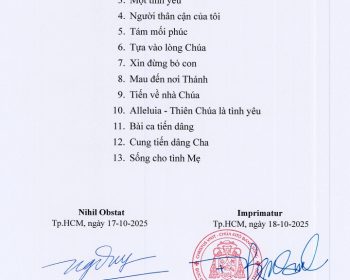 3. Một tình yêu
4. Người thân cận của tôi
5. Tám mối phúc
6. Tựa vào lòng Chúa
7. Xin đừng bỏ con
8. Mau đến nơi Thánh
9. Tiến về nhà Chúa
10. Alleluia - Thiên Chúa là tình yêu
11. Bài ca tiến dâng
12. Cung tiến dâng Cha
13. Sống cho tình Mẹ
Nihil Obstat Imprimatur
Tp.HCM, ngày 17-10-2025 Tp.HCM, ngày 18-10-2025